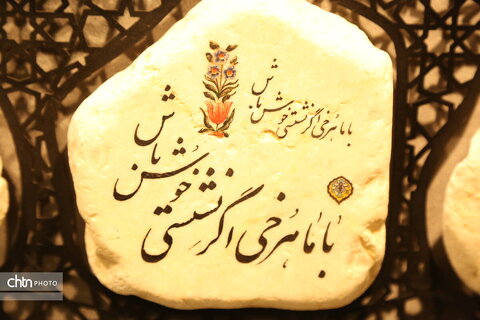 با ماهرخی اگر نشستی خوش باش
با ماهرخی اگر نشستی خوش باش
chtn PHOTO